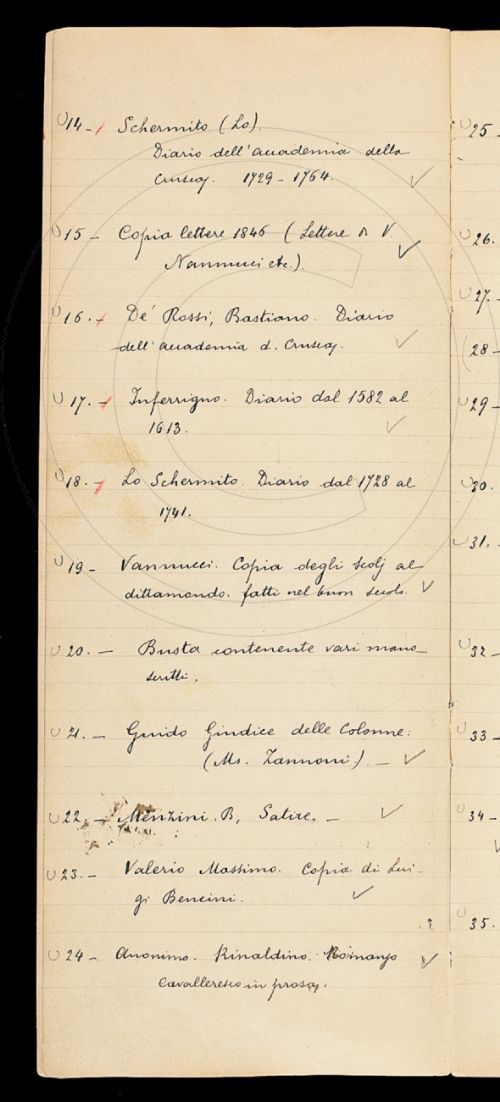 14 - Schermito (Lo).
Diario dell'accademia della
Crusca. 1729 - 1764.
15 - Copia lettere 1846 (Lettere di V.
Nannucci etc.).
16. - De' Rossi, Bastiano. Diario
dell'accademia d. Crusca.
17. - Inferrigno. Diario dal 1582 al
1613.
18. - Lo Schermito. Diario dal 1728 al
1741.
19 - Vannucci. Copia degli scolj al
dittamondo. fatti nel buon secolo.
20. - Busta contenente vari mano-
scritti.
21. - Guido Giudice delle Colonne.
(Ms. Zannoni). -
22. - Menzini. B, Satire. -
23. - Valerio Massimo. Copia di Lui-
gi Bencini.
24 - Anonimo. Rinaldino. Romanzo
Cavalleresco in prosa.
25 -
26.
27. -
28 -
29 -
30.
31. -
32 -
33 -
34 -
35.